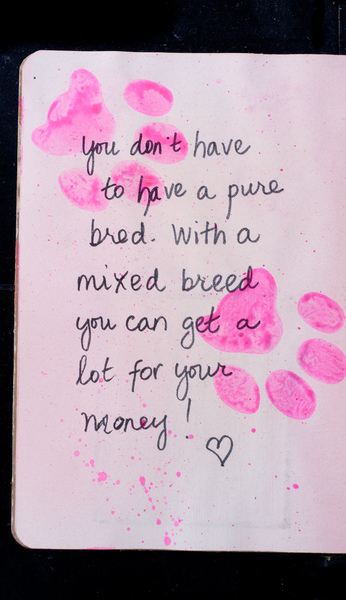 you don't have
to have a pure
bred. With a
mixed breed
you can get a
lot for your
money!